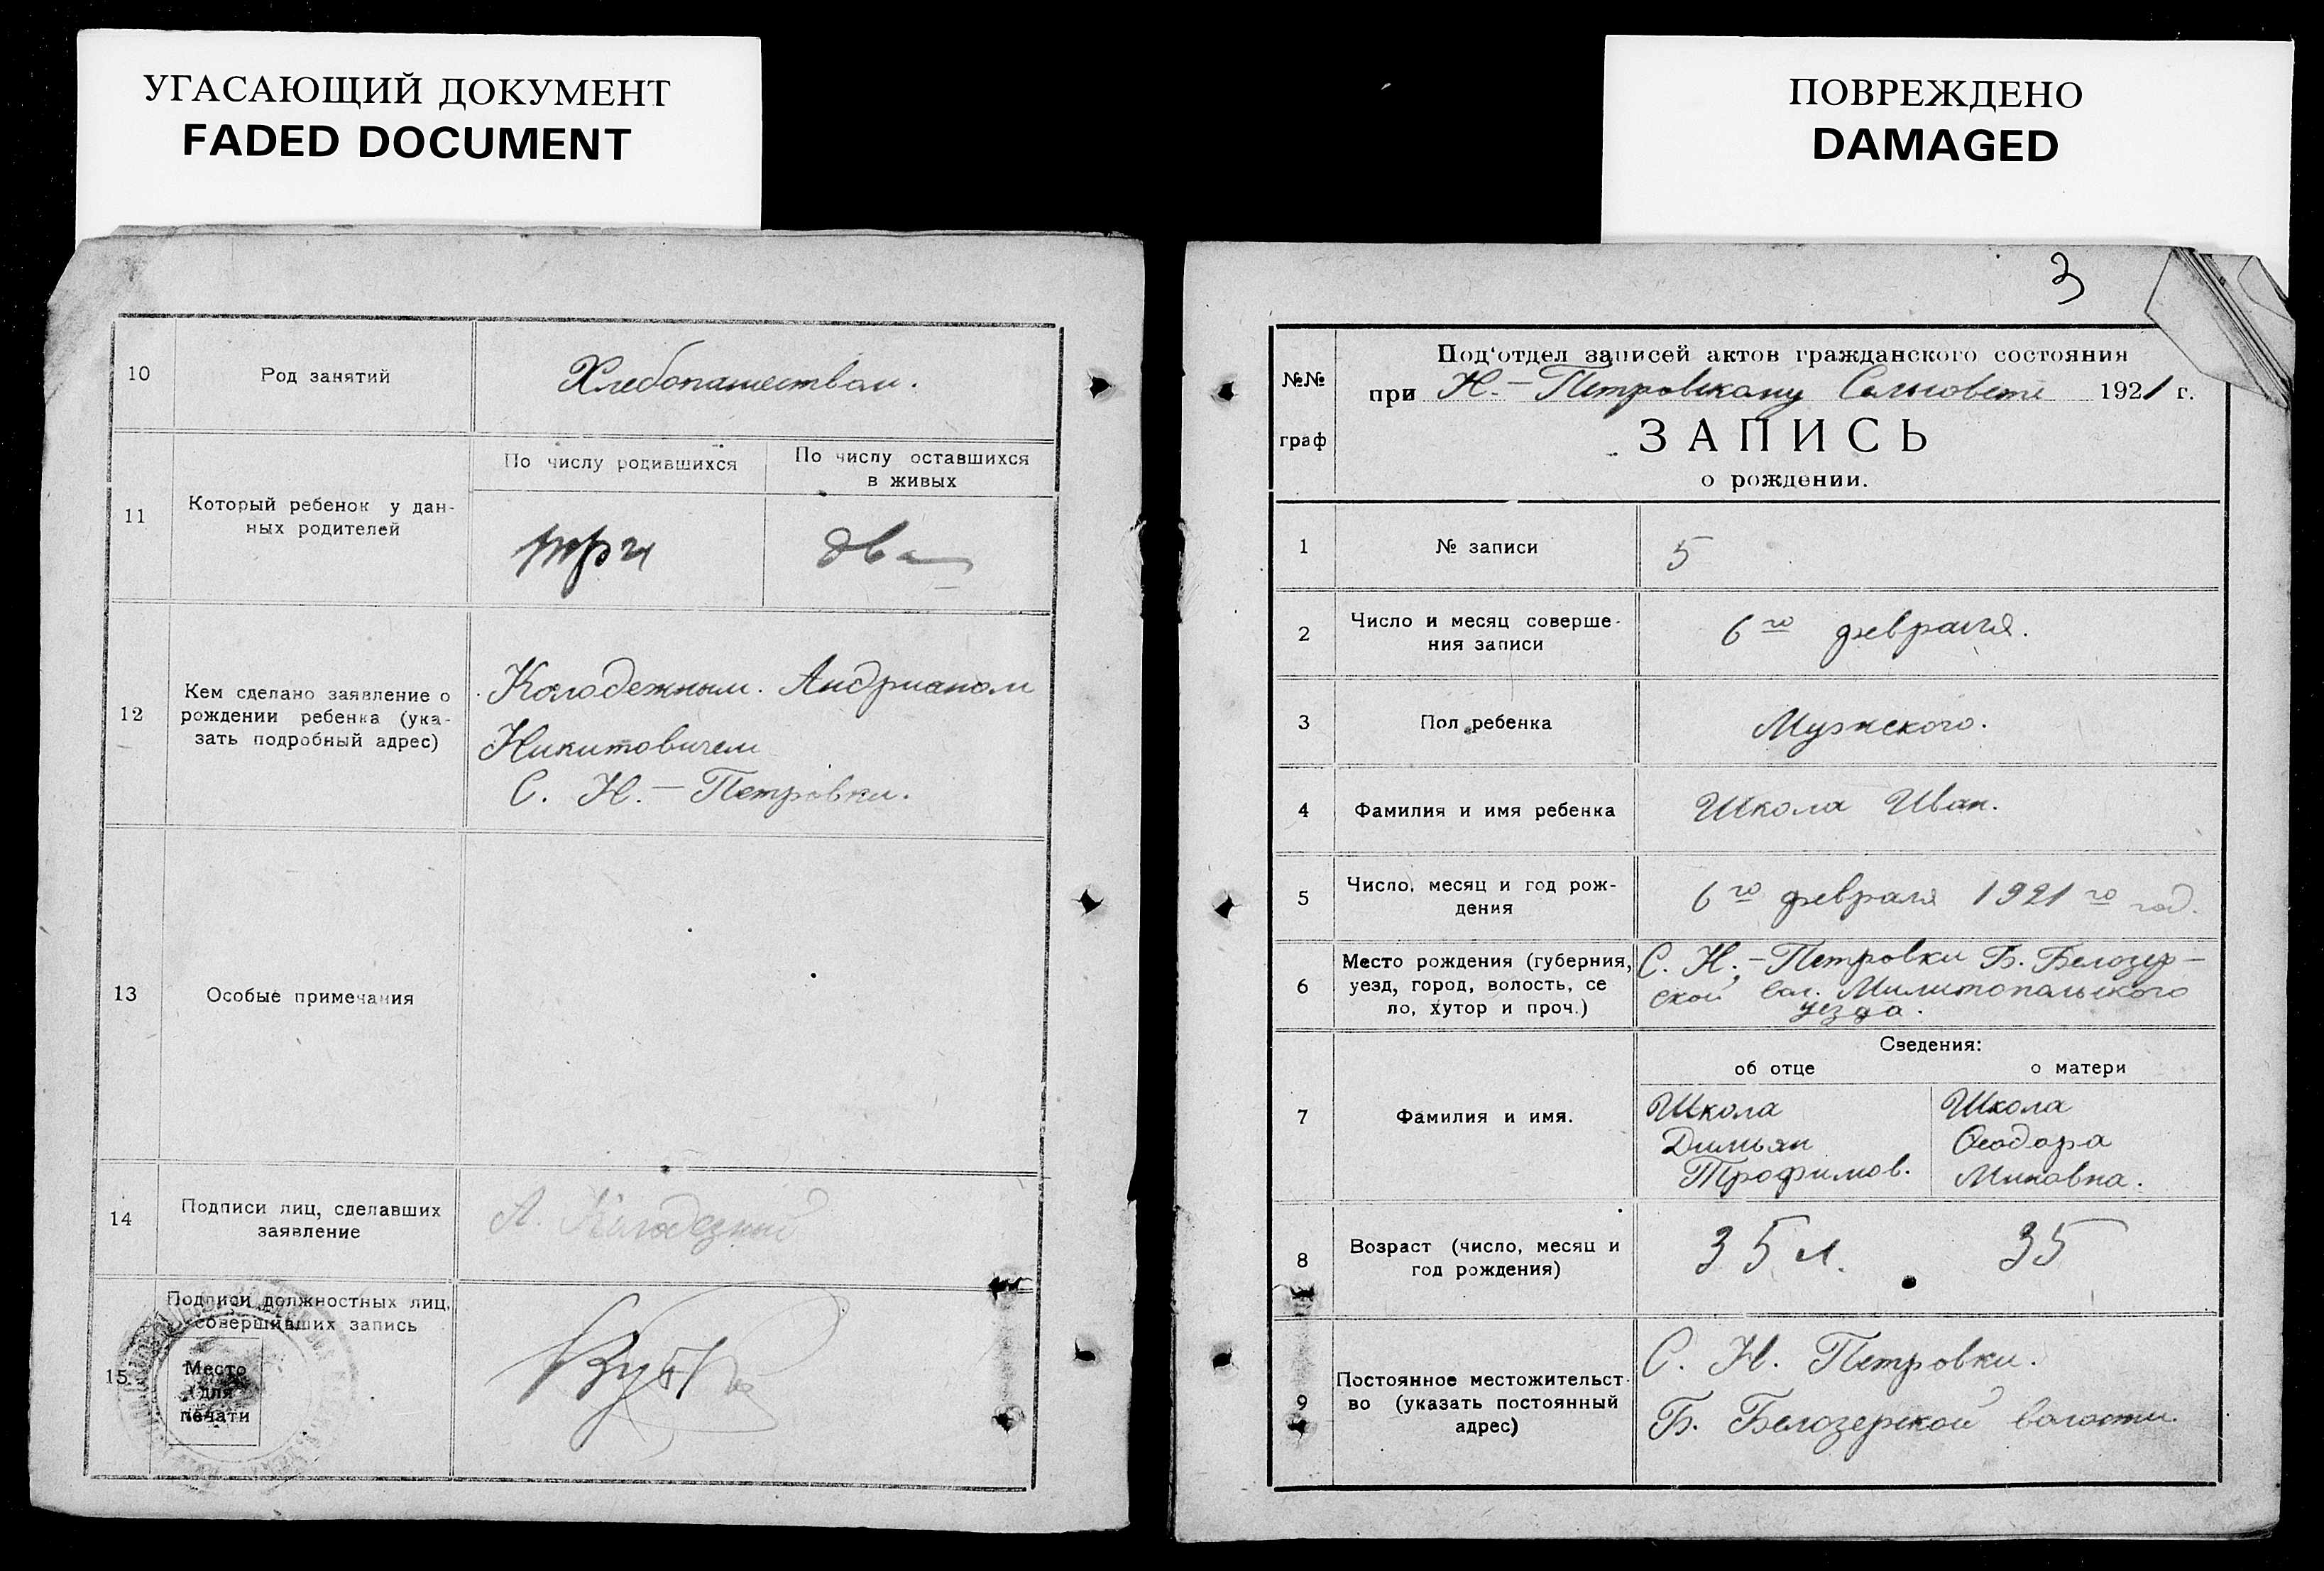 УГАСАЮЩИЙ ДОКУМЕНТ
FADED DOCUMENT
ПОВРЕЖДЕНО
DAMAGED
10
Род занятий
Хлебопашеством.
11
Который ребенок у дан-
ных родителей
По числу родившихся
По числу оставшихся
в живых
три
два
12
Кем сделано заявление о
рождении ребенка (ука-
зать подробный адрес)
Колодежным. Андрианом
Никитовичем
С. Н.-Петровки.
13
Особые примечания
14
Подписи лиц, сделавших
заявление
А. Колодезный
15.
Подписи должностных лиц,
совершивших запись
Место
(для
печати
3
№№
граф
Под'отдел записей актов гражданского состояния
при Н.-Петровскому Сельсовете 1921 г.
ЗАПИСЬ
о рождении.
1
№ записи
5
2
Число и месяц соверше-
ния записи
6го февраля.
3
Пол ребенка
Мужского.
4
Фамилия и имя ребенка
Школа Иван.
5
Число, месяц и год рож-
дения
6го февраля 1921го год.
6
Место рождения (губерния,
уезд, город, волость, се
ло, хутор и проч.)
С. Н.-Петровки Б. Белозер-
ской вол. Милитопольского
уезда.
Сведения:
об отце
о матери
7
Фамилия и имя.
Школа
Димьян
Трофимов.
Школа
Феодора
Миновна.
8
Возраст (число, месяц и
год рождения)
35 л.
35
9
Постоянное местожительст-
во (указать постоянный
адрес)
С. Н. Петровки.
Б. Белозерской волости.